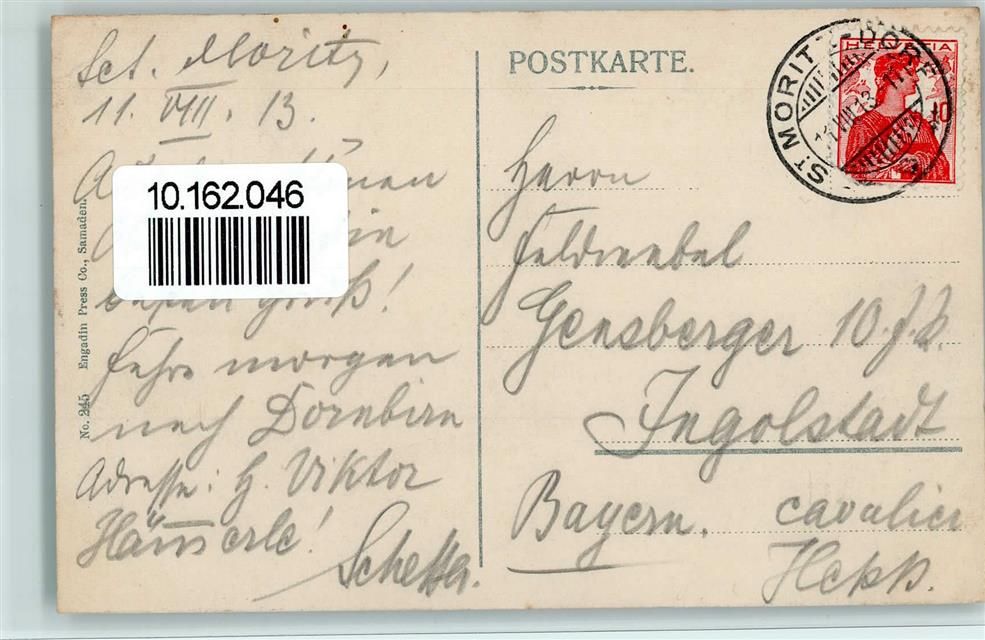 Sct. Moritz,
11. VIII. 13.
10.162.046
Gruß!
Fahre morgen
nach Dornbirn
Adresse: H. Viktor
Hämerle!
No. 245 Engadin Press Co., Samaden.
POSTKARTE.
HELVETIA
10
ST MORITZ-DORF
11.VIII.13
Herrn
Feldwebel
Gensberger 10. J.R.
Ingolstadt
Bayern. cavalier
Hepp.